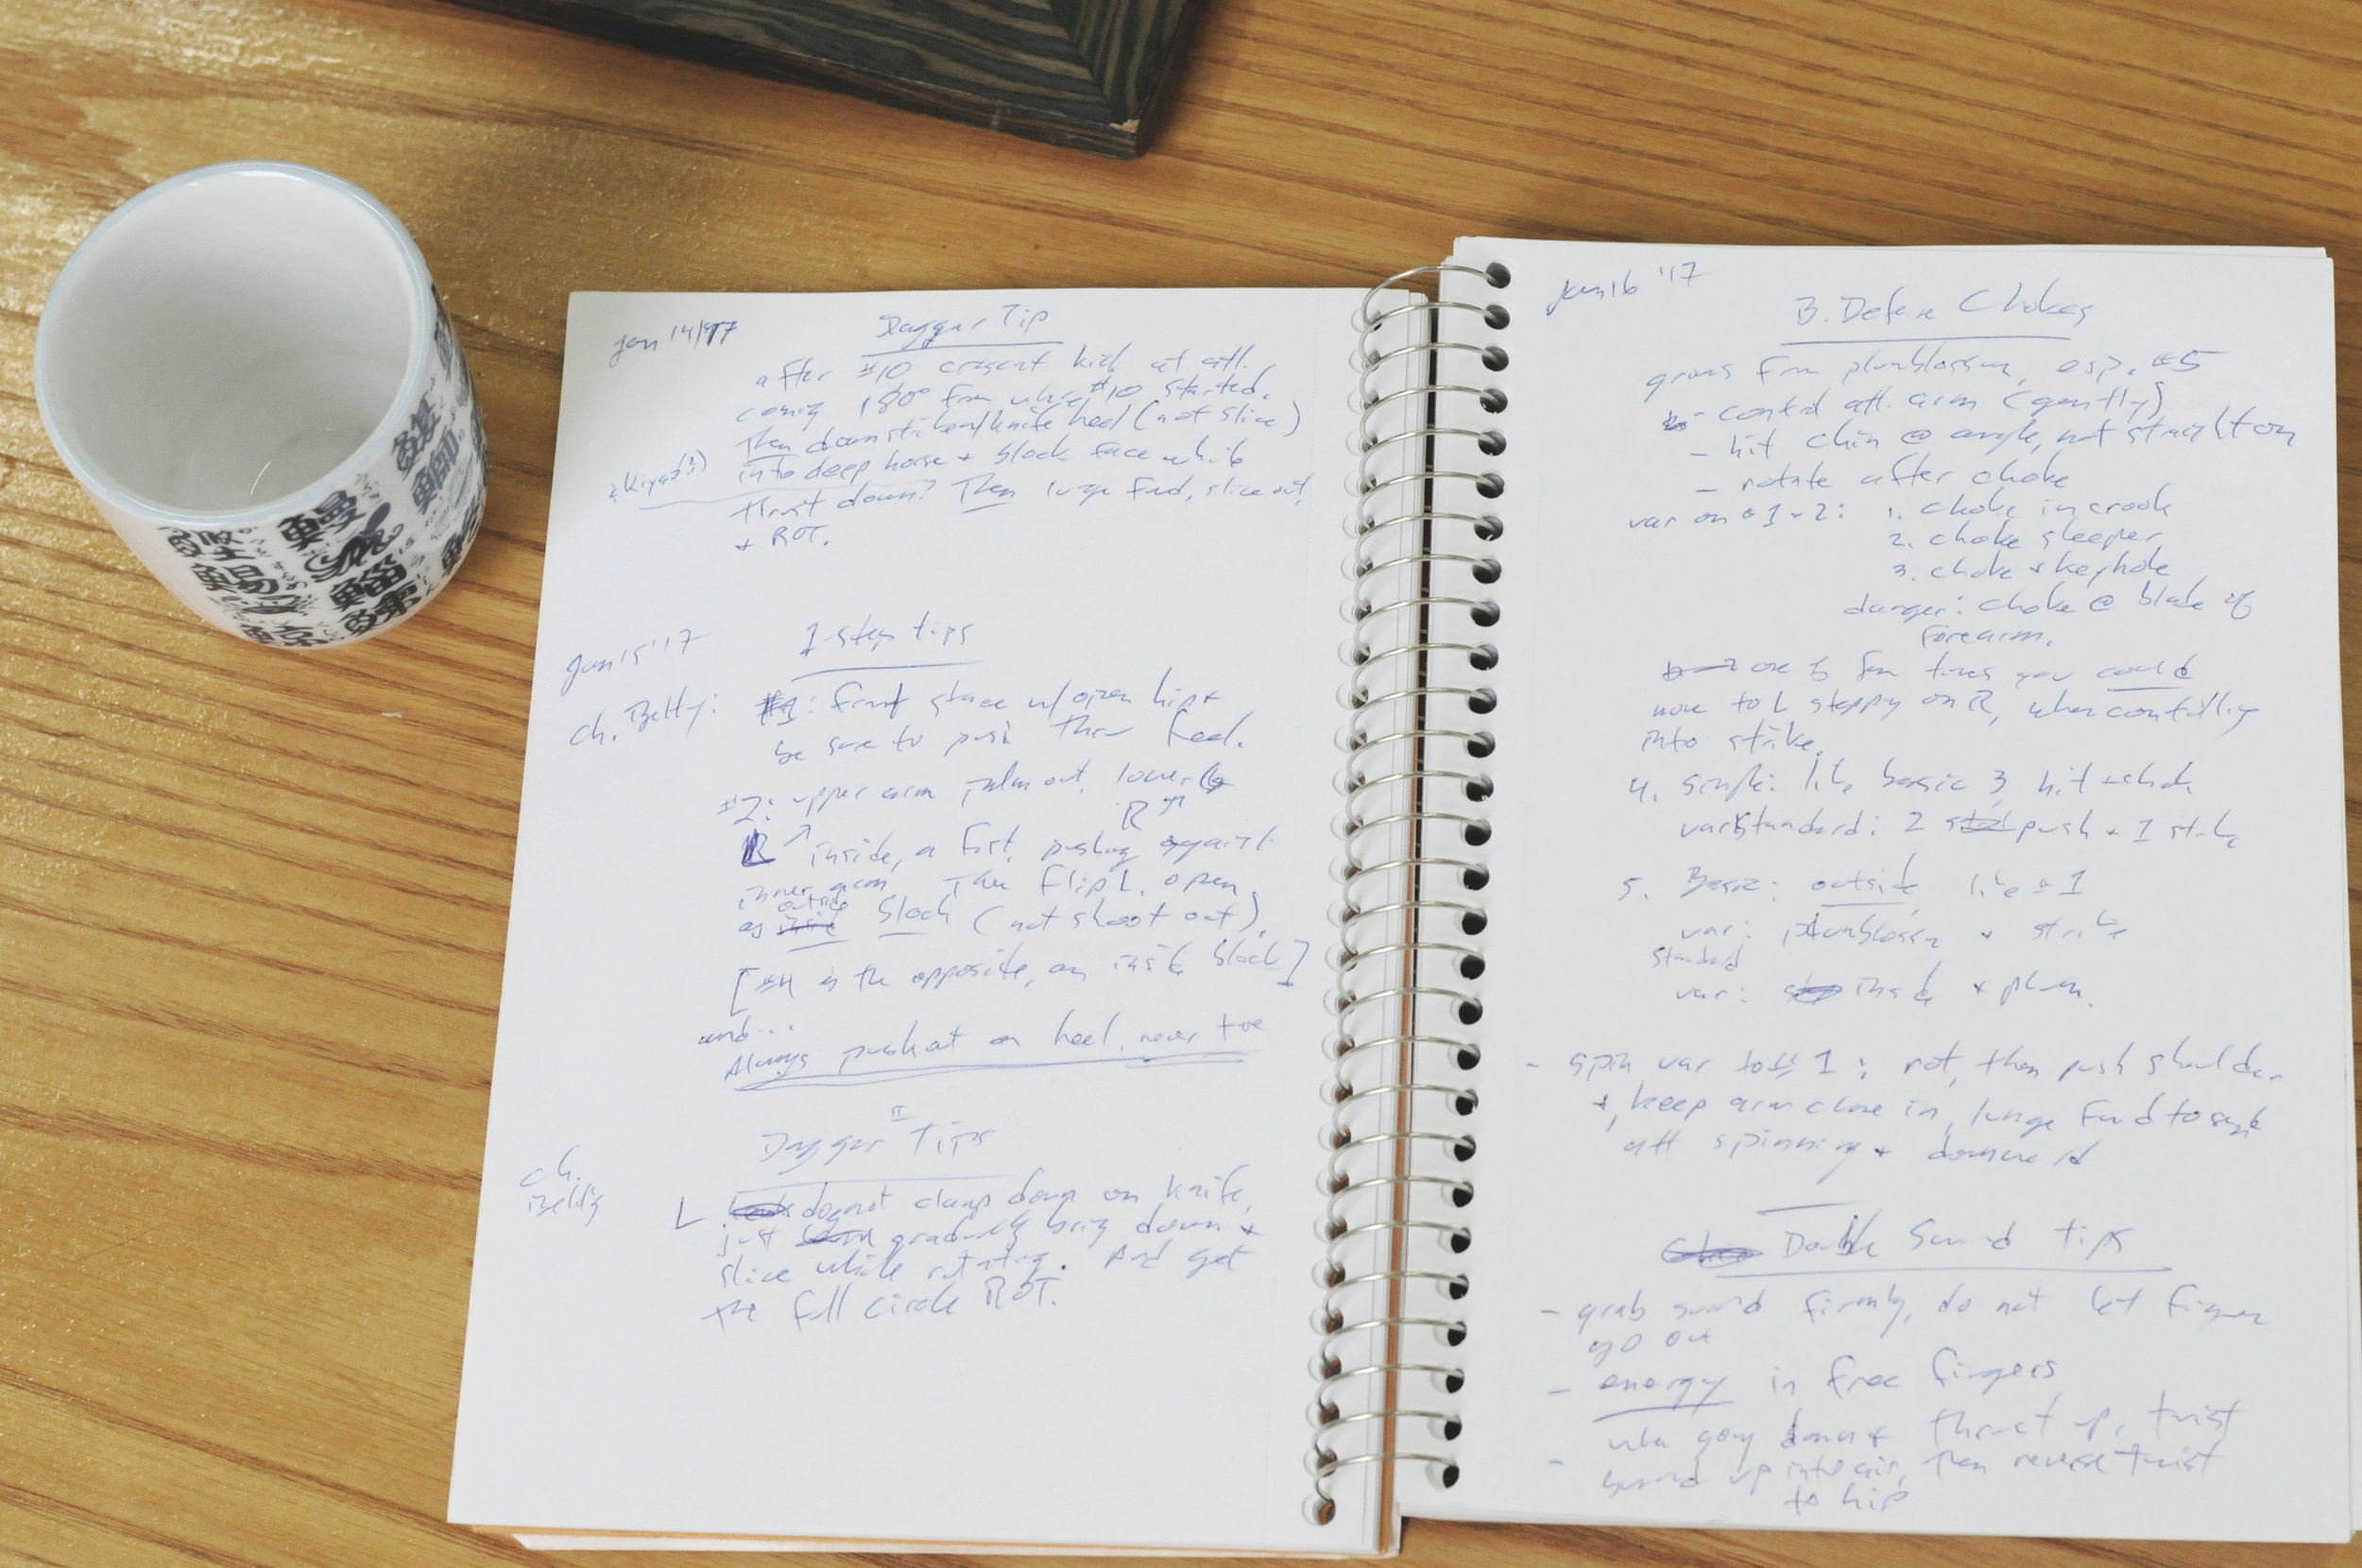 Jan 14/17
Dagger Tip
after #10 cresent kick at att.
coming 180° from where #10 started.
Then down strike w/ knife heel (not slice)
into deep horse + block face while
thrust down? Then lunge fwd, slice out,
+ ROT.
Jan 15 '17
1-step tips
ch. Betty:
#1: front stance w/ open hip +
be sure to push thru heel.
#2: upper arm palm out, lower
R
inside, a fist, pushing against
inner arm. Then flip L. open
outside
as block (not shoot out)
[#4 is the opposite, an inside block]
and...
Always push out on heel, never toe
Dagger II Tips
ch.
L do not clamp down on knife,
just gradually bring down +
slice while rotating. And get
the full circle ROT.
Jan 16 '17
B. Defense Chokes
grows from plumblossom, esp. #5
- control att. arm (gently)
- hit chin @ angle, not straight on
- rotate after choke
var on #1+2: 1. choke in crook
2. choke sleeper
3. choke + keyhole
danger: choke @ blade of
forearm.
one of few times you could
move to L stepping on R, when controlling
into strike.
4. single: like basic 3, hit + choke
var standard: 2 push + 1 strike
5. Basic: outside, like #1
var: plumblossom + strike
standard
var: inside + plum.
- spin var to #1: rot, then push shoulder
+ keep arm close in, lunge fwd to send
att spinning + downward
Double Sword tips
- grab sword firmly, do not let finger
go out
- energy in free fingers
- when going down + thrust up, twist
sword up into air, then reverse twist
to hip